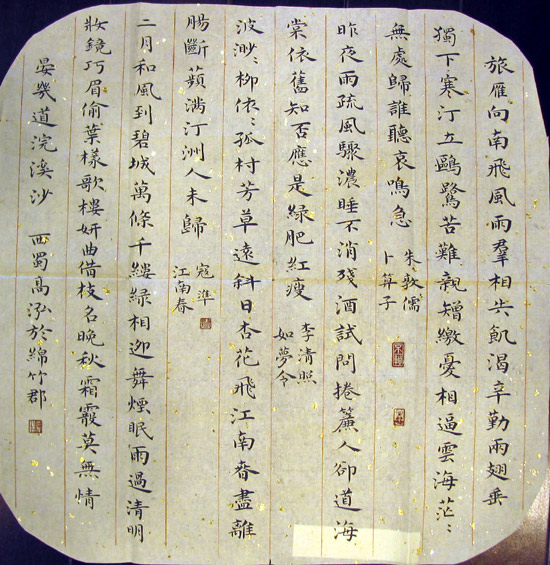 旅雁向南飛風雨羣相失飢渴辛勤兩翅垂
獨下寒汀立鷗鷺苦難親矰繳憂相逼雲海茫〻
無處歸誰聽哀鳴急
朱敦儒
卜算子
昨夜雨疏風驟濃睡不消殘酒試問捲簾人卻道海
棠依舊知否應是綠肥紅瘦
李清照
如夢令
波渺〻柳依〻孤村芳草遠斜日杏花飛江南春盡離
腸斷蘋滿汀洲人未歸
寇準
江南春
二月和風到碧城萬條千縷綠相迎舞煙眠雨過清明
妝鏡巧眉偷葉樣歌樓妍曲借枝名晚秋霜霰莫無情
晏幾道浣溪沙 西蜀高泓於綿竹郡